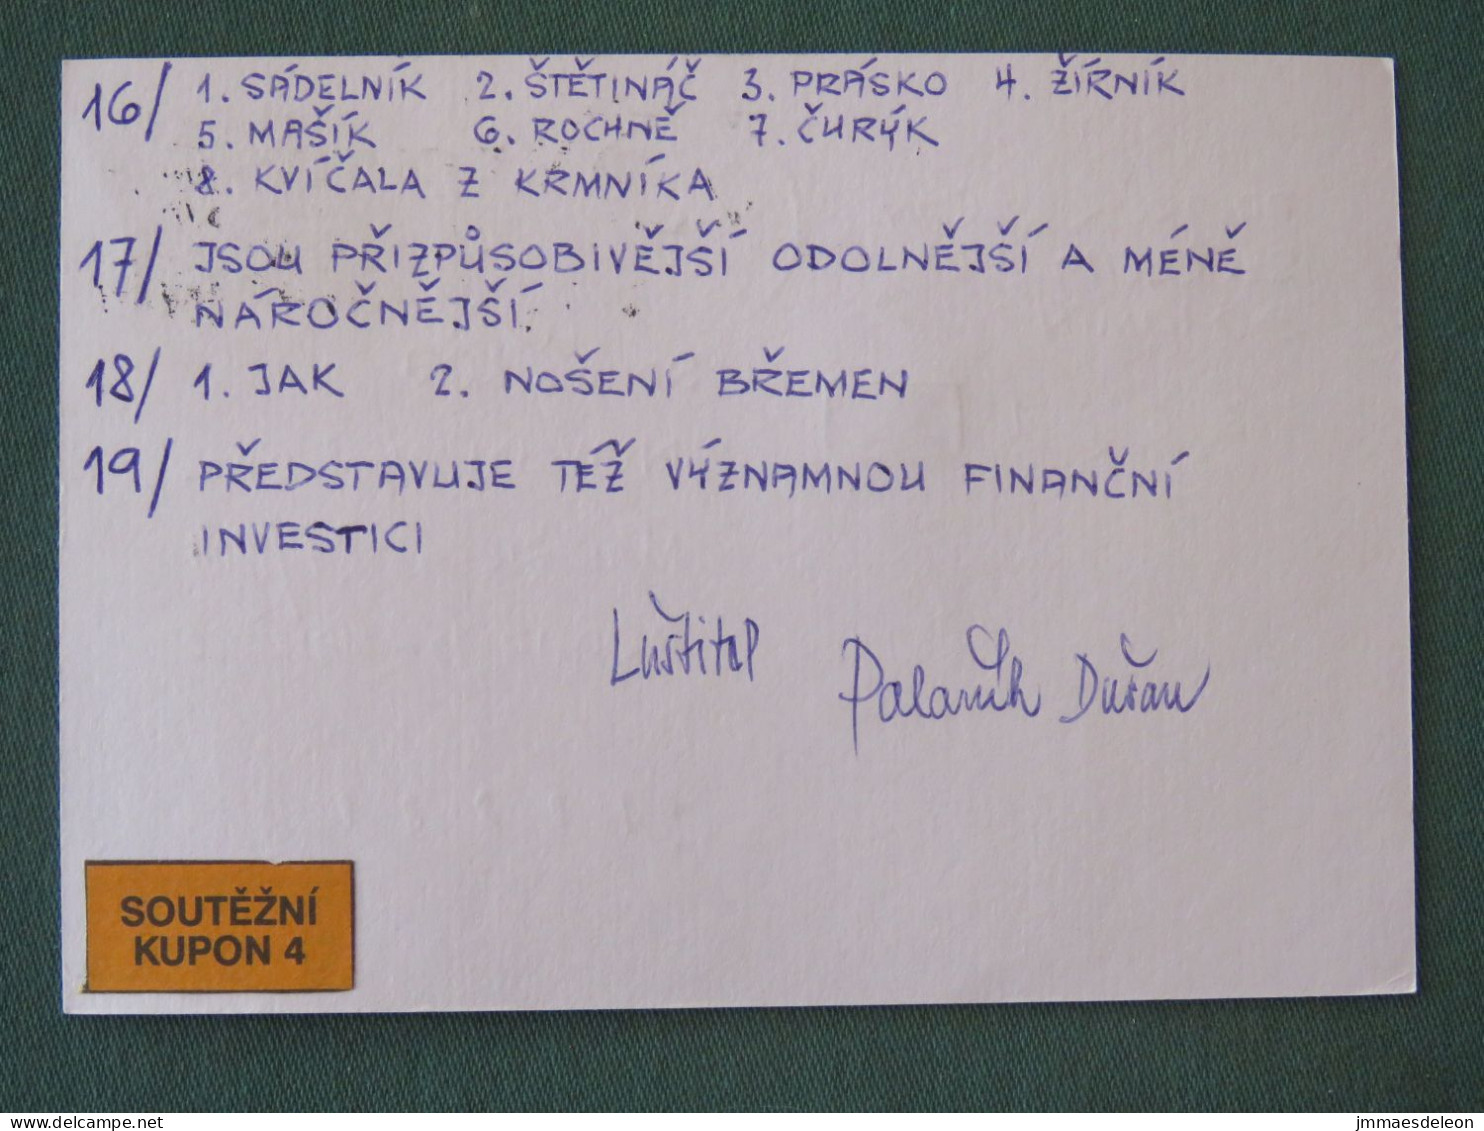 16/ 1. SÁDELNÍK 2. ŠTĚTINÁČ 3. PRÁSKO 4. ŽÍRNÍK
5. MAŠÍK 6. ROCHNĚ 7. ČURÝK
8. KVÍČALA Z KRMNÍKA
17/ JSOU PŘIZPŮSOBIVĚJŠÍ ODOLNĚJŠÍ A MÉNĚ
NÁROČNĚJŠÍ.
18/ 1. JAK 2. NOŠENÍ BŘEMEN
19/ PŘEDSTAVUJE TÉŽ VÝZNAMNOU FINANČNÍ
INVESTICI
Luštitel
Dušan
SOUTĚŽNÍ
KUPON 4
delcampe.net
jmmaesdeleon